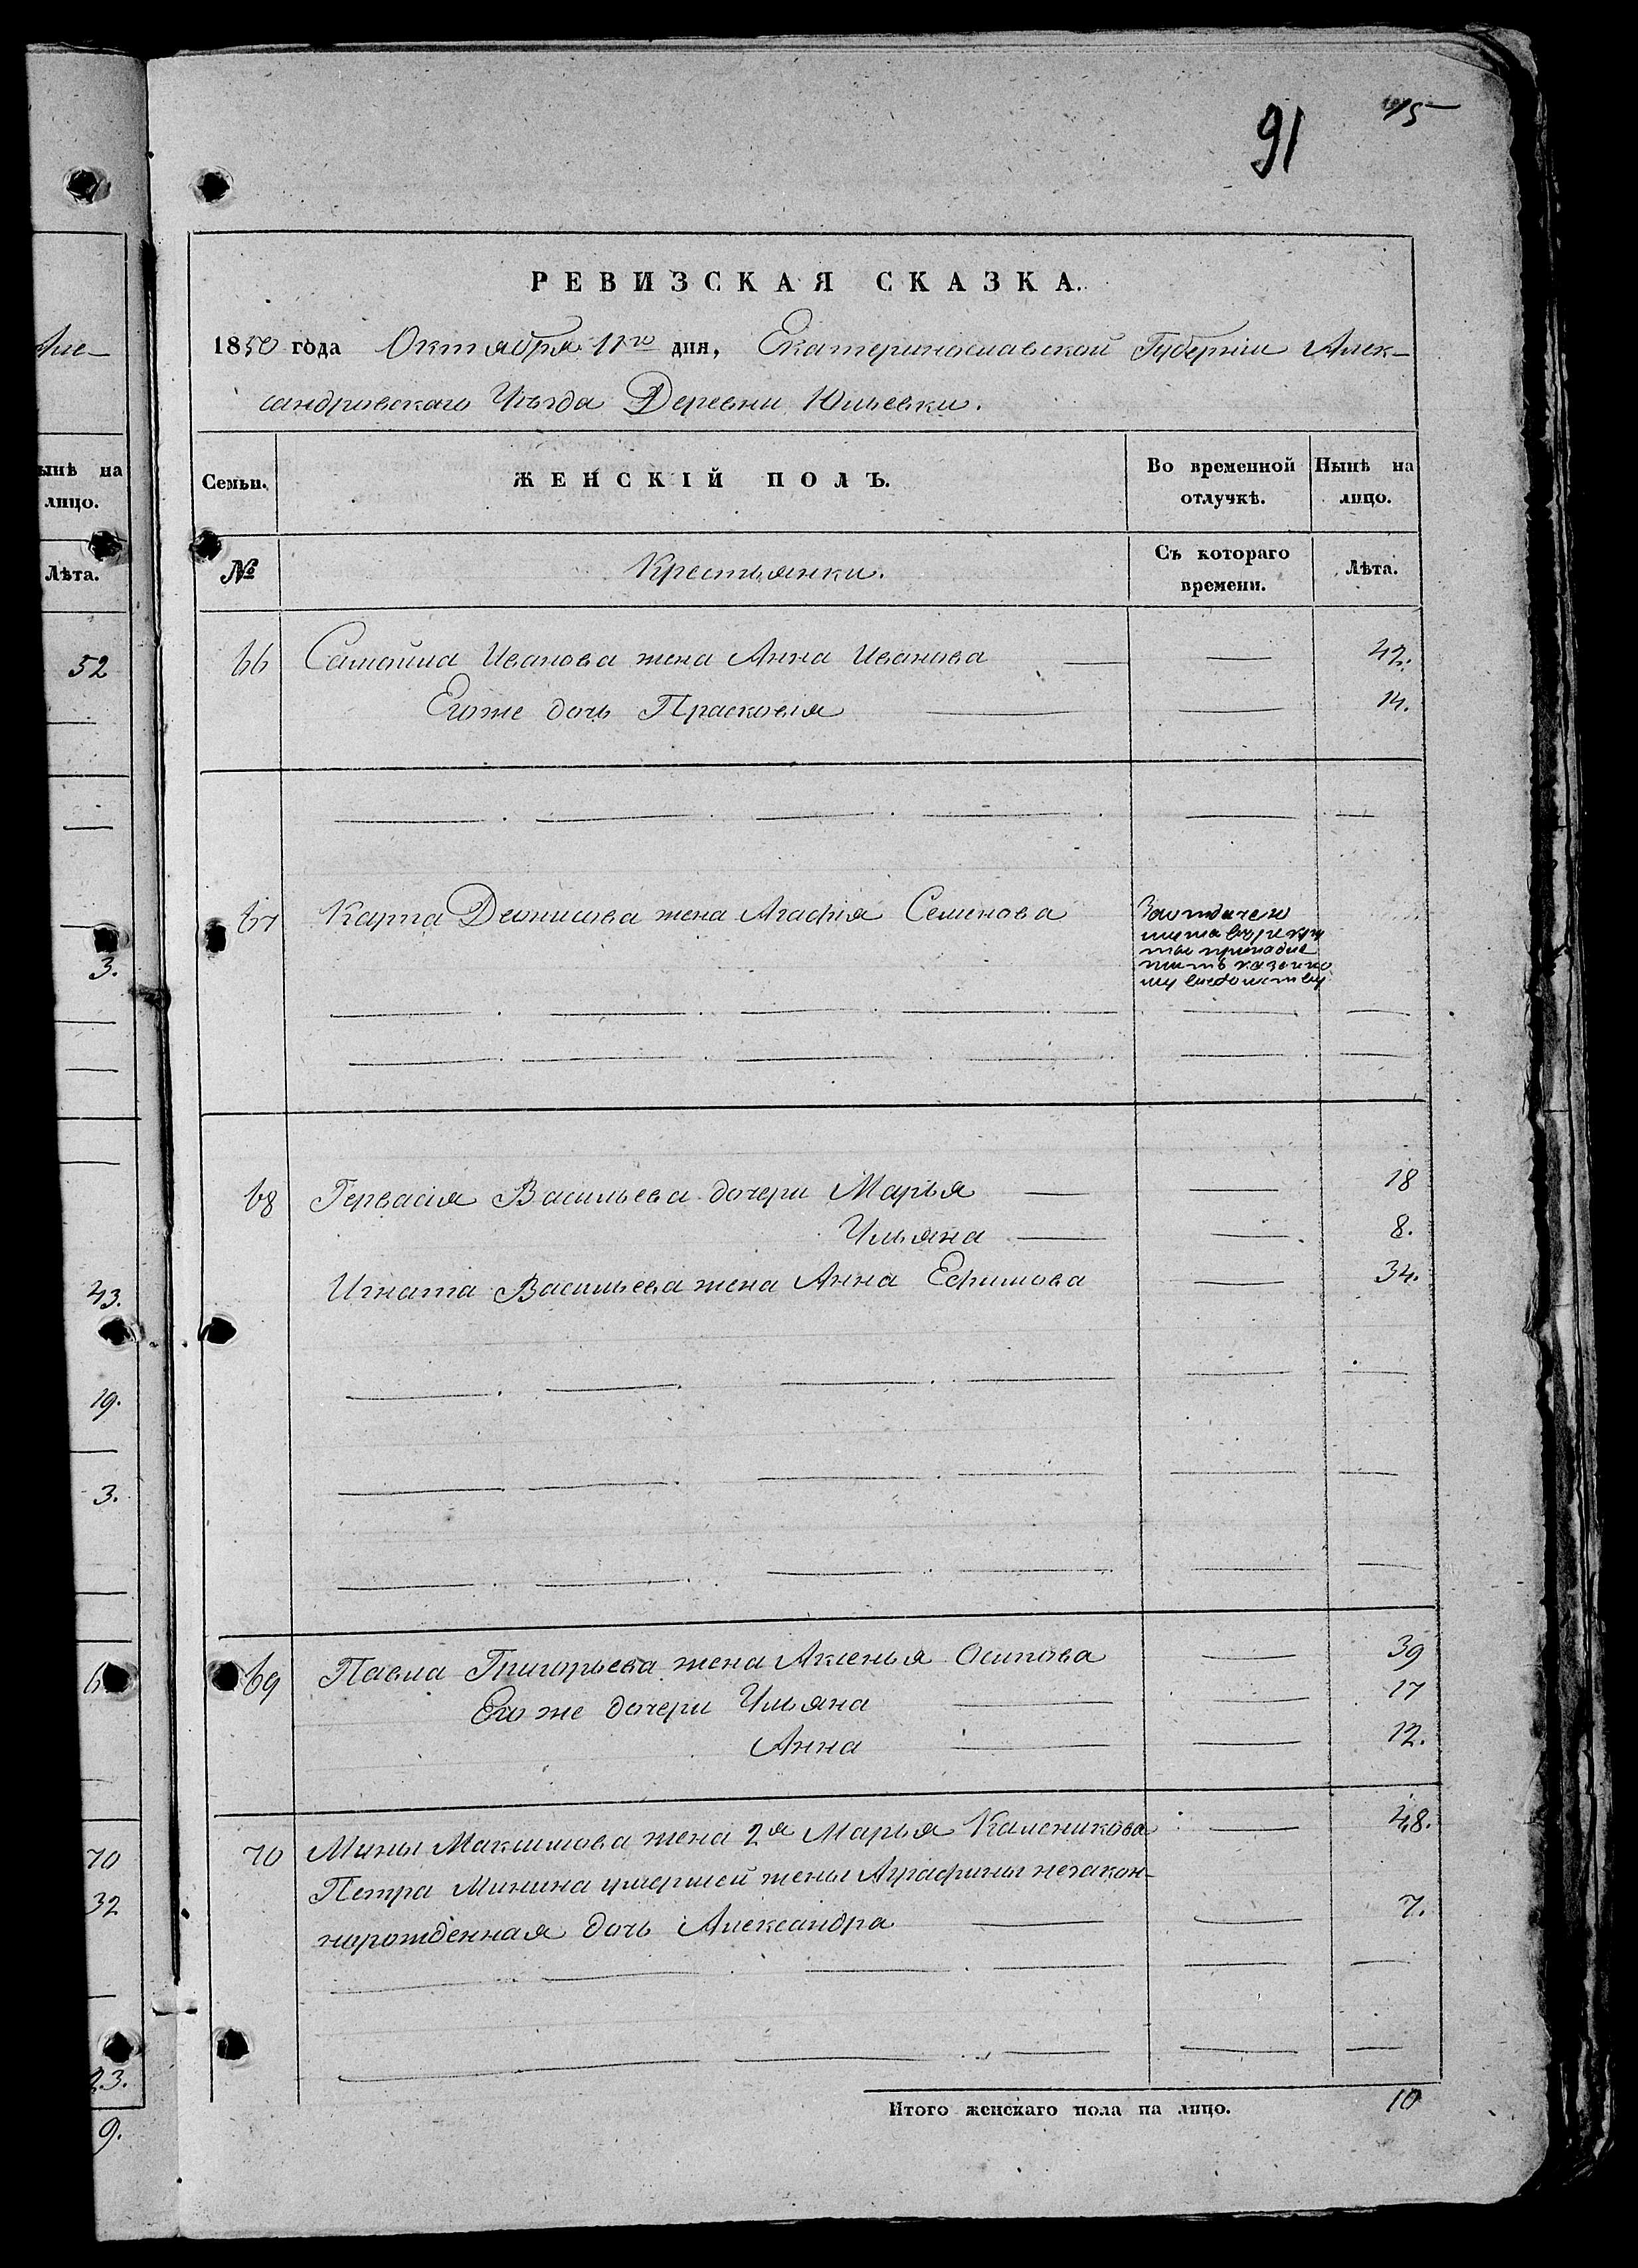 91
15
РЕВИЗСКАЯ СКАЗКА.
1850 года Октября 11го дня, Екатеринославской Губернии Алек-
сандровскаго Уѣзда Деревни Юльевки.
Семьи.
ЖЕНСКІЙ ПОЛЪ.
Во временной отлучкѣ.
Нынѣ на лицо.
№
Крестьянки.
Съ котораго времени.
Лѣта.
66 Самойла Иванова жена Анна Иванова — — 42.
Егоже дочь Прасковія — — 14.
67 Карпа Деонисова жена Агафія Семенова
За отдачею
мужа въ рекру
ты принадле
житъ казенно
му вѣдомству
68 Гервасія Васильева дочери Марья — — 18
Ульяна — — 8.
Игната Васильева жена Анна Ефимова — 34.
69 Павла Григорьева жена Аксенья Осипова — 39
Его же дочери Ульяна — — 17
Анна — — 12.
70 Мины Максимова жена 2я Марья Каленикова — 48.
Петра Минина умершей жены Аграфины незакон-
норожденная дочь Александра — — 7.
Итого женскаго пола на лицо. 10
Але-
ынѣ на
лицо.
Лѣта.
52
3.
43.
19.
3.
6
70
32
23.
9.